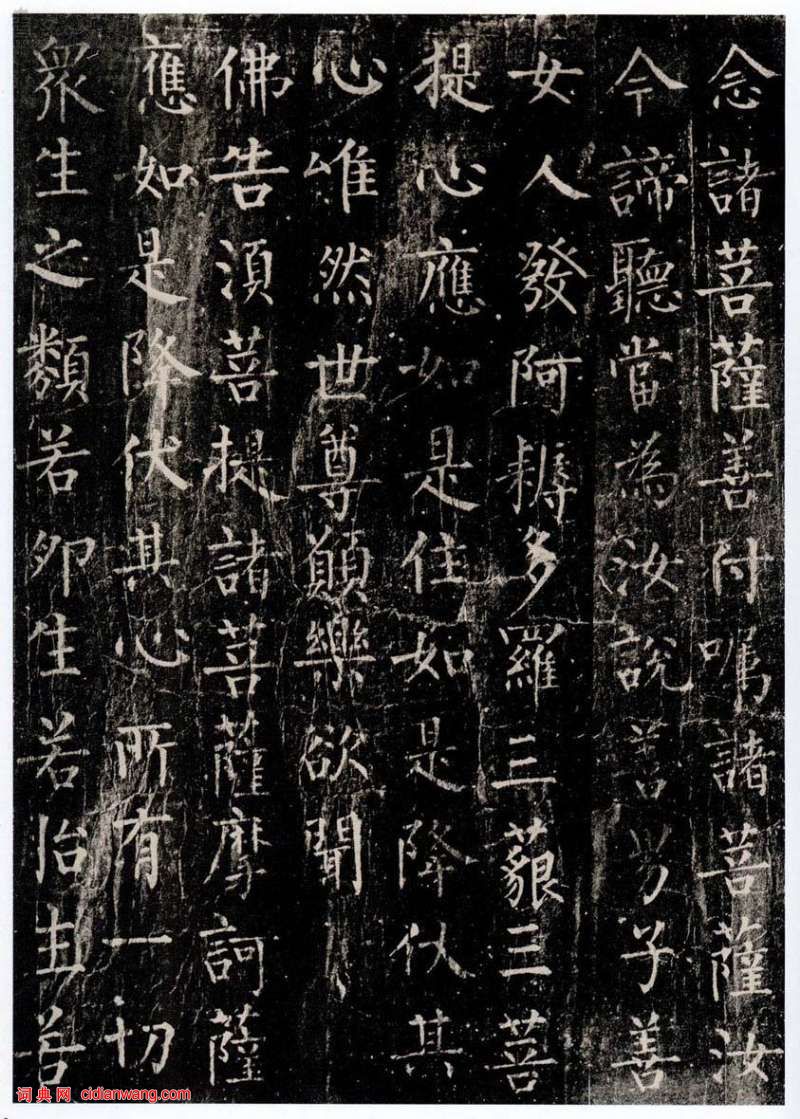 念諸菩薩善付囑諸菩薩汝
今諦聽當為汝說善男子善
女人發阿耨多羅三藐三菩
提心應如是住如是降伏其
心唯然世尊願樂欲聞
佛告須菩提諸菩薩摩訶薩
應如是降伏其心所有一切
眾生之類若卵生若胎生若
词典网 cidianwang.com